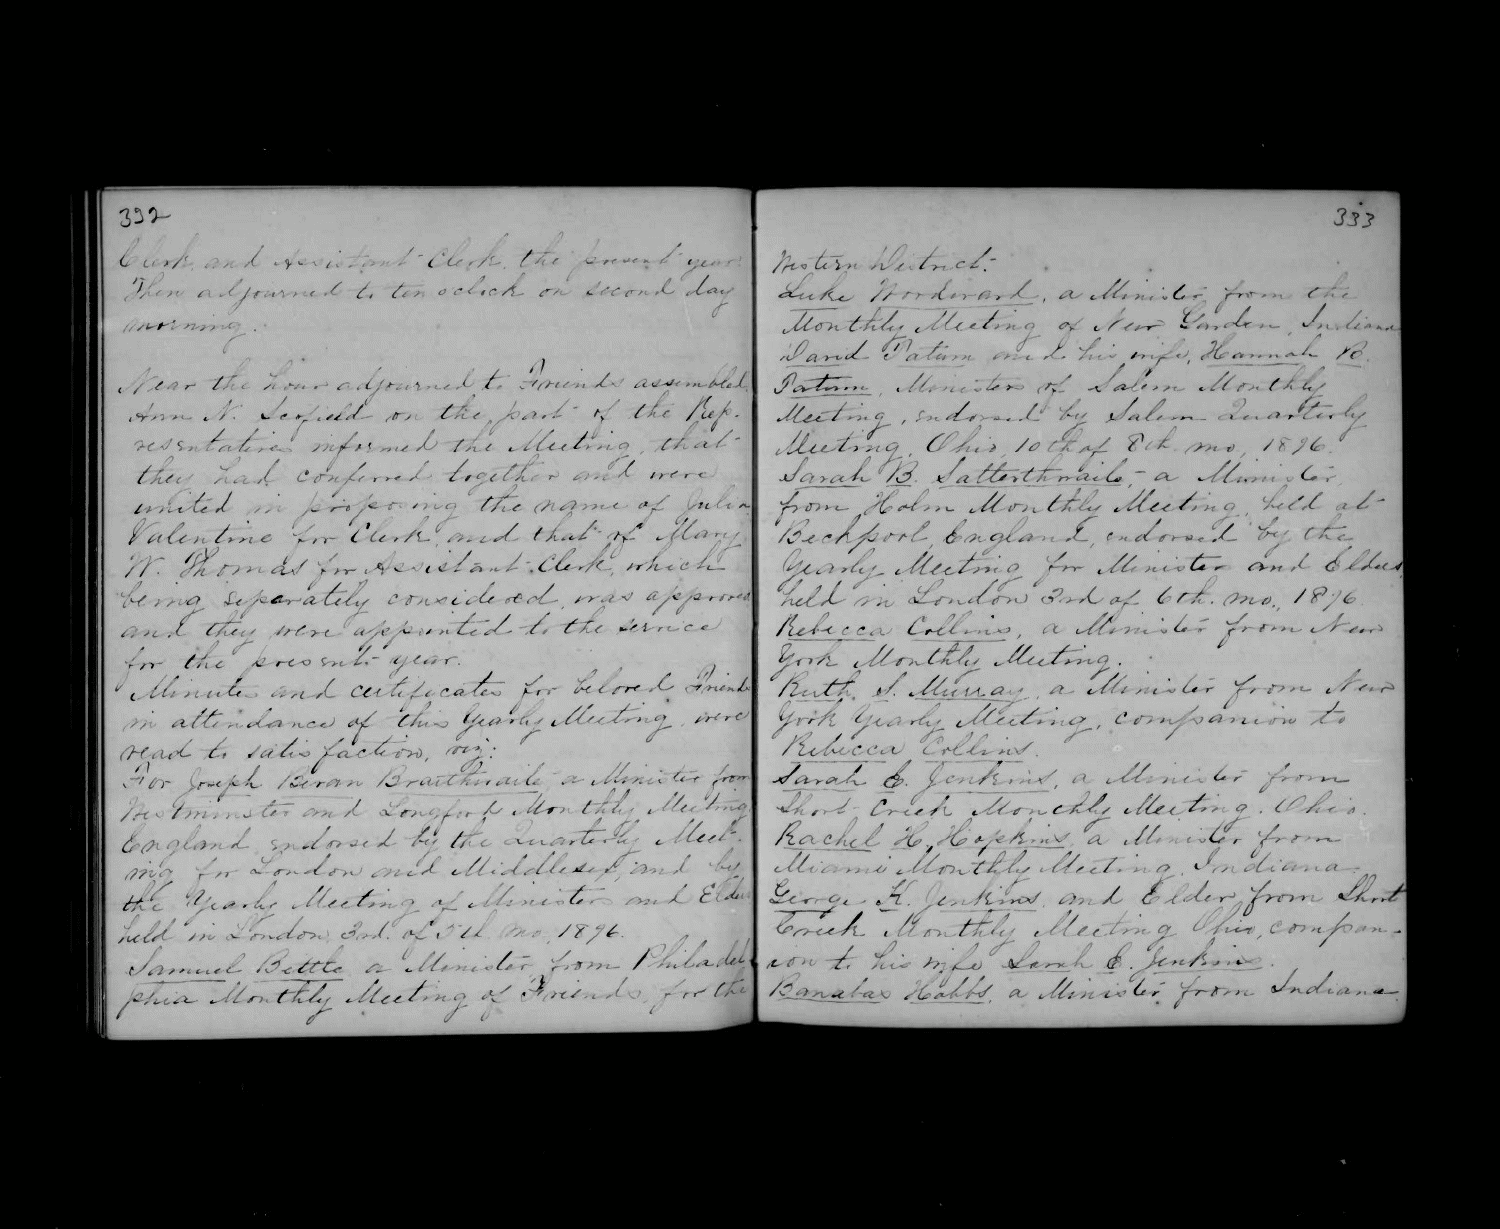 332
Clerk and Assistant Clerk the present year.
Then adjourned to ten oclock on second day
morning.
Near the hour adjourned to Friends assembled.
Ann N. Scofield on the part of the Rep-
resentatives informed the Meeting that
they had conferred together and were
united in proposing the name of Julia
Valentine for Clerk and that of Mary
W. Thomas for Assistant Clerk, which
being seperately considered, was approved
and they were appointed to the service
for the present year.
Minutes and certificates for beloved Friends
in attendance of this Yearly Meeting were
read to satisfaction, viz:
For Joseph Bevan Braithwaite, a Minister from
Westminster and Longford Monthly Meeting
England, endorsed by the Quarterly Meet-
ing for London and Middlesex, and by
the Yearly Meeting of Ministers and Elders
held in London, 3rd. of 5th mo, 1896.
Samuel Bettle a Minister from Philadel-
phia Monthly Meeting of Friends, for the
333
Western District.
Luke Woodward, a Minister from the
Monthly Meeting of New Garden, Indiana
David Tatum and his wife, Hannah B.
Tatum, Ministers of Salem Monthly
Meeting, endorsed by Salem Quarterly
Meeting, Ohio, 10th of 8th mo, 1896.
Sarah B. Satterthwaite, a Minister,
from Holm Monthly Meeting, held at
Beckpool, England, endorsed by the
Yearly Meeting for Minister and Elders,
held in London 3rd of 6th. mo., 1896.
Rebecca Collins, a Minister from New
York Monthly Meeting.
Ruth S. Murray, a Minister from New
York Yearly Meeting, companion to
Rebecca Collins.
Sarah E. Jenkins, a Minister from
Short Creek Monthly Meeting. Ohio.
Rachel H. Hopkins, a Minister from
Miami Monthly Meeting, Indiana
George K. Jenkins, and Elder from Short
Creek Monthly Meeting Ohio, compan-
ion to his wife Sarah E. Jenkins.
Banabas Hobbs, a Minister from Indiana